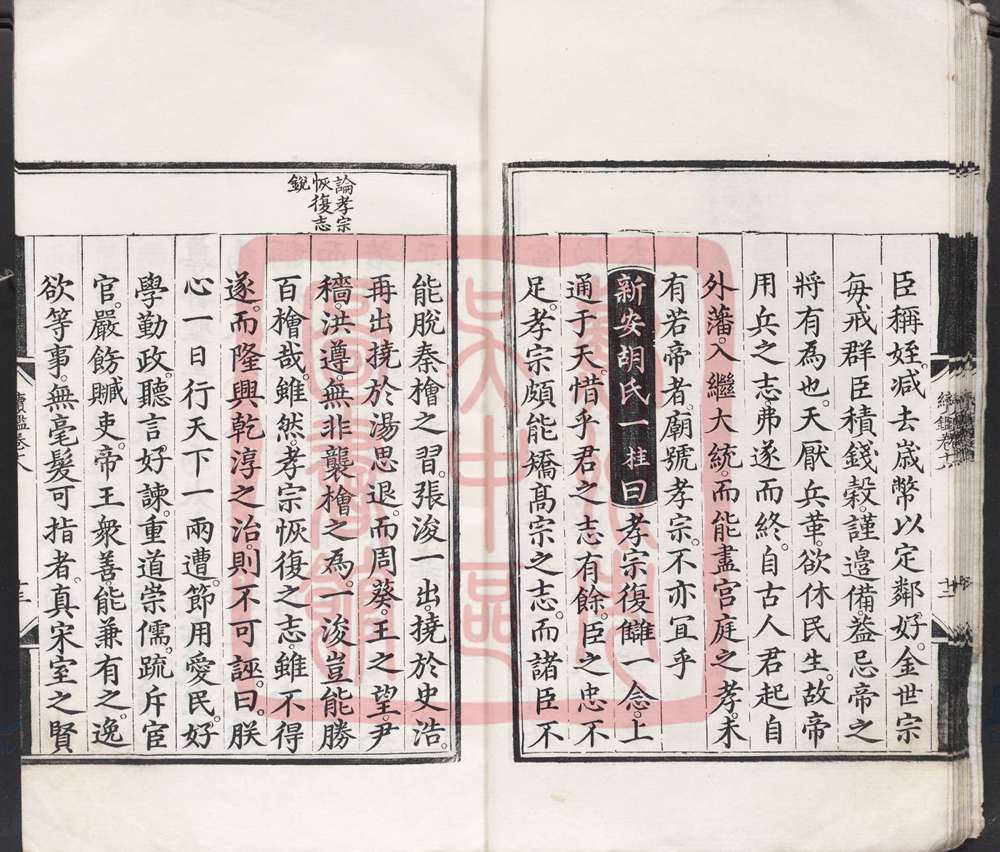 臣稱姪。減去歲幣以定鄰好。金世宗
每戒群臣積錢穀。謹邊備。蓋忌帝之
將有為也。天厭兵革。欲休民生。故帝
用兵之志弗遂而終。自古人君起自
外藩。入繼大統。而能盡宮庭之孝。未
有若帝者。廟號孝宗。不亦宜乎
新安胡氏一桂曰孝宗復讎一念。上
通于天。惜乎君之志有餘。臣之忠不
足。孝宗頗能矯高宗之志。而諸臣不
論孝宗
恢復志
銳
能脫秦檜之習。張浚一出。撓於史浩。
再出撓於湯思退。而周葵。王之望。尹
穡。洪遵。無非襲檜之為。一浚豈能勝
百檜哉。雖然。孝宗恢復之志。雖不得
遂。而隆興乾淳之治。則不可誣。曰。朕
心一日行天下一兩遭。節用愛民。好
學勤政。聽言好諫。重道崇儒。疏斥宦
官。嚴飭贓吏。帝王衆善能兼有之。逸
欲等事。無毫髮可指者。真宋室之賢